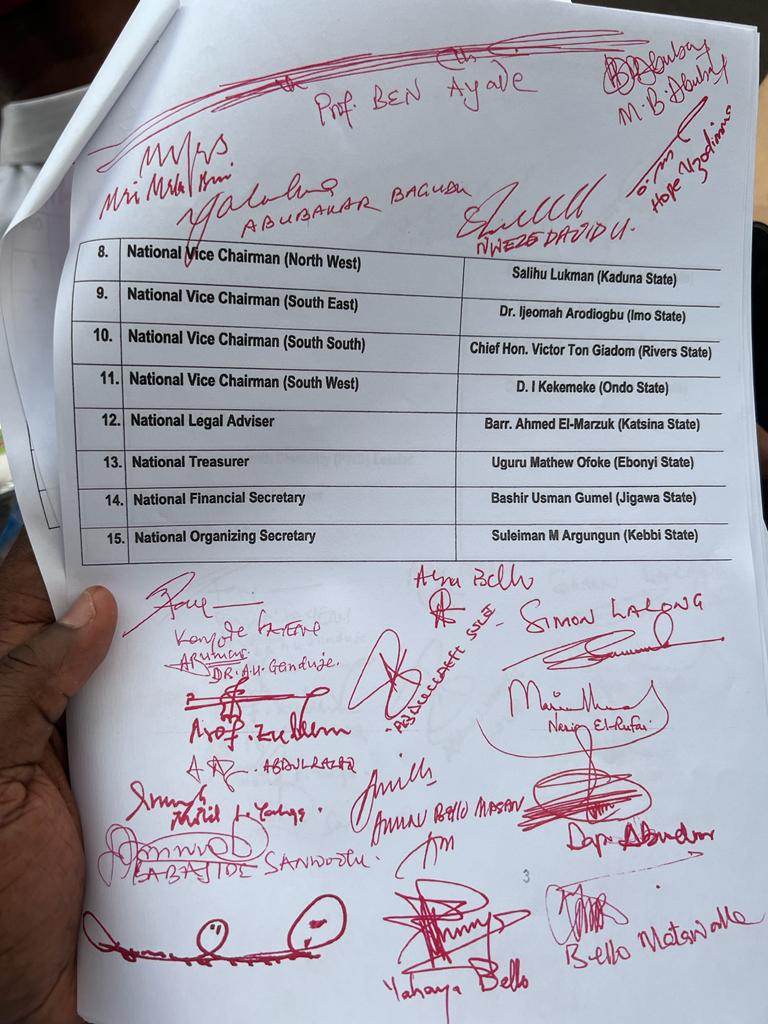 Prof. BEN Ayade
M.B. Abubay
Hope Uzodimma
ABUBAKAR BAGUDU
NWEZE DAVID U.
8. National Vice Chairman (North West) Salihu Lukman (Kaduna State)
9. National Vice Chairman (South East) Dr. Ijeomah Arodiogbu (Imo State)
10. National Vice Chairman (South South) Chief Hon. Victor Ton Giadom (Rivers State)
11. National Vice Chairman (South West) D. I Kekemeke (Ondo State)
12. National Legal Adviser Barr. Ahmed El-Marzuk (Katsina State)
13. National Treasurer Uguru Mathew Ofoke (Ebonyi State)
14. National Financial Secretary Bashir Usman Gumel (Jigawa State)
15. National Organizing Secretary Suleiman M Argungun (Kebbi State)
Bello
SIMON LALONG
Kayode
DR. A.U. Ganduje.
Nasir El-Rufai
Prof. Zulum
ABDULRAZAQ
BELLO MASARI
BABAJIDE SANWOOLU.
3
Yahaya Bello
Bello Matawalle